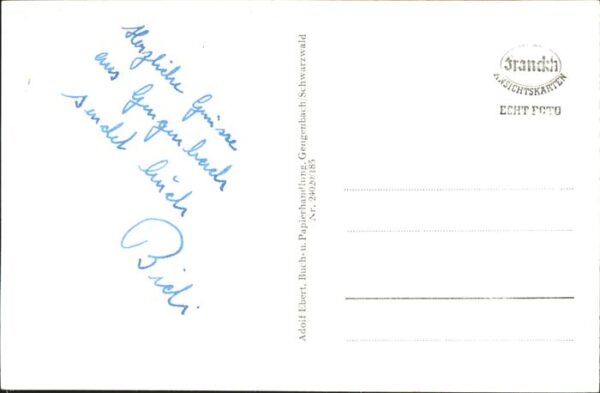 Herzliche Grüsse
aus Gengenbach
sendet Euch
Adolf Ebert, Buch- u. Papierhandlung, Gengenbach Schwarzwald
Nr. 24020/185
Franckh
ANSICHTSKARTEN
ECHT FOTO